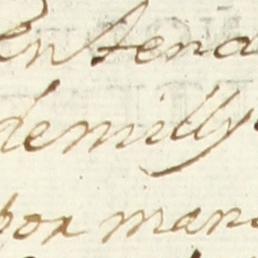 entend
demill y
por man